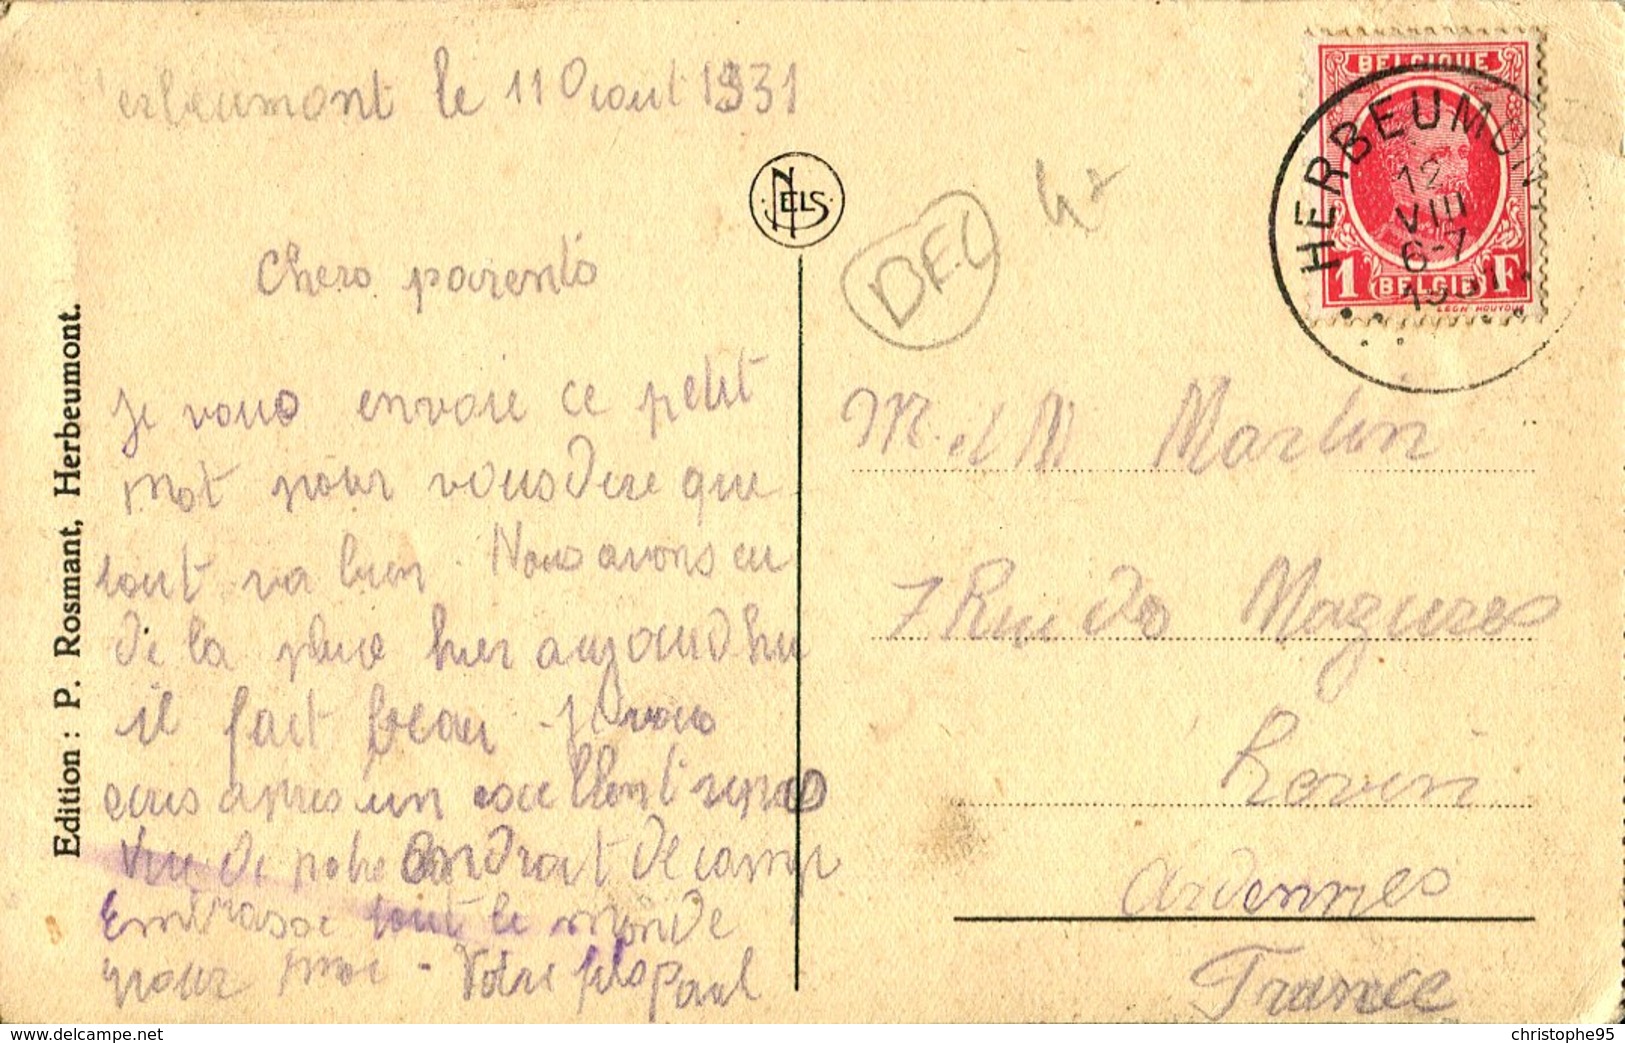 Herbeumont le 11 Oaout 1931
Chers parents
Je vous envoie ce petit
mot pour vous dire que
tout va bien. Nous avons eu
de la pluie hier aujourdhu
il fait beau - je vous
ecris apres un excellent repas
Vue de notre endroit de camp
Embrasse tout le monde
pour moi - Votre fils Paul
Edition : P. Rosmant, Herbeumont.
NELS
DEL
42
BELGIQUE
1 BELGIË F
HERBEUMONT
12
VIII
6-7
1931
M. et M Martin
7 Rue des Mazures
Revin
Ardennes
France
christophe95